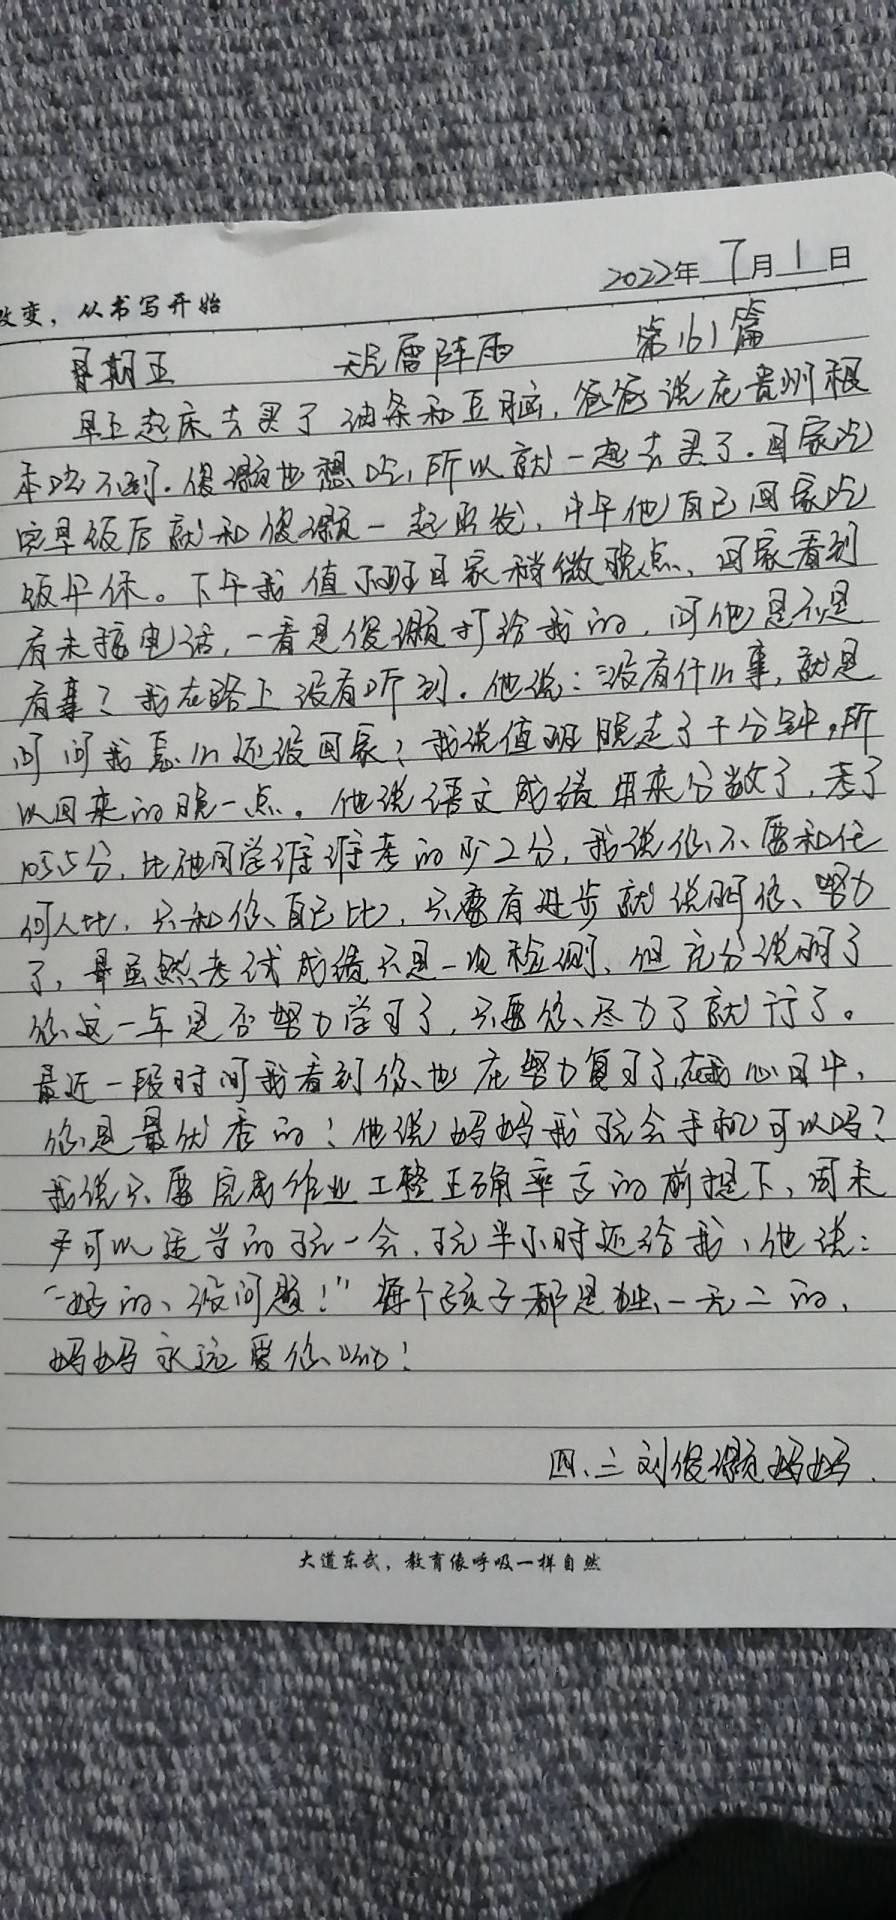 2022年7月1日
改变，从书写开始
星期五 雷阵雨 第161篇
早上起床去买了油条和豆脑，爸爸说在贵州根
本吃不到．俊灏也想吃，所以就一起去买了．回家吃
完早饭后就和俊灏一起出发，中午他自己回家吃
饭午休。下午我值班回家稍微晚点、回家看到
有未接电话，一看是俊灏打给我的，问他是不是
有事？我在路上没有听到．他说：没有什么事，就是
问问我怎么还没回家？我说值班晚走了十分钟，所
以回来的晚一点。他说语文成绩出来分数了，考了
105.5分，比他同学谁谁考的少2分，我说你不要和任
何人比，只和你自己比，只要有进步就说明你、努力
了，虽然考试成绩只是一次检测、但充分说明了
你这一年是否努力学习了，只要你、尽力了就行了。
最近一段时间我看到你也在努力复习了，在我心目中，
你是最优秀的！他说妈妈我玩会手机可以吗？
我说只要完成作业工整正确率高的前提下，周末
可以适当的玩一会，玩半小时还给我，他说：
“好的、没问题！”每个孩子都是独一无二的，
妈妈永远爱你哟！
四、三刘俊灏妈妈．
大道东武，教育像呼吸一样自然